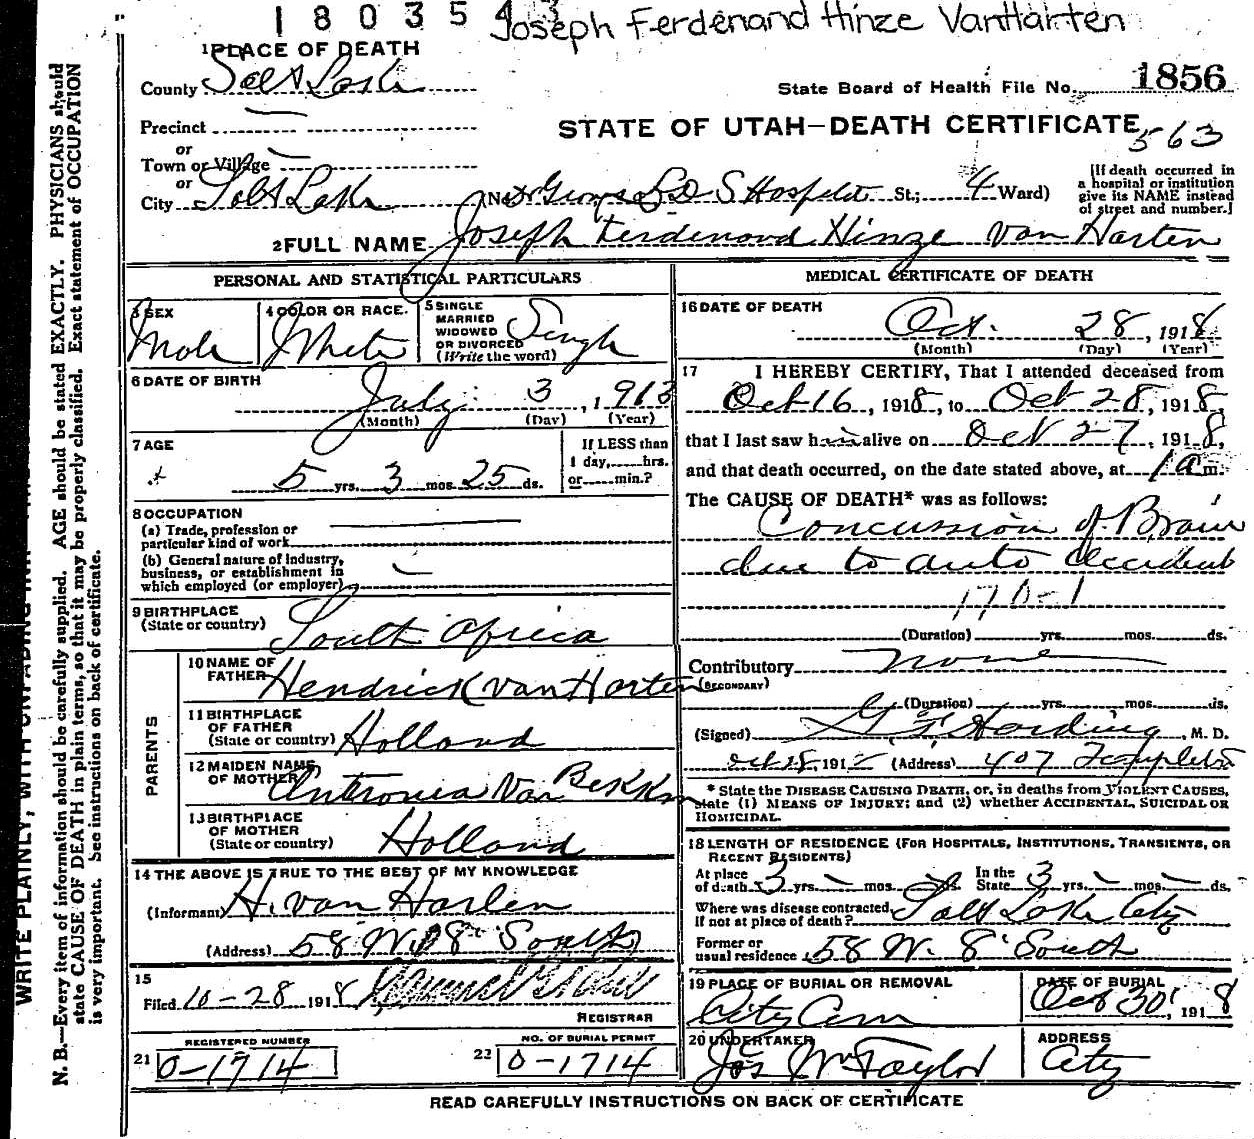 1 8 0 3 5 4 3
Joseph Ferdenand Hinze VanHarten
1 PLACE OF DEATH
County Salt Lake
State Board of Health File No. 1856
Precinct
STATE OF UTAH—DEATH CERTIFICATE
563
or
Town or Village
or
City Salt Lake (No. Dr Groves L D S Hospital St.; 4 Ward)
[If death occurred in
a hospital or institution
give its NAME instead
of street and number.]
2 FULL NAME Joseph Ferdenand Hinze Van Harten
PERSONAL AND STATISTICAL PARTICULARS
3 SEX
Male
4 COLOR OR RACE.
White
5 SINGLE
MARRIED
WIDOWED
OR DIVORCED
(Write the word)
Single
6 DATE OF BIRTH
July 3, 1913
(Month) (Day) (Year)
7 AGE
5 yrs. 3 mos. 25 ds.
If LESS than
1 day, hrs.
or min.?
8 OCCUPATION
(a) Trade, profession or
particular kind of work
(b) General nature of industry,
business, or establishment in
which employed (or employer)
9 BIRTHPLACE
(State or country) South Africa
PARENTS
10 NAME OF
FATHER Hendrick van Harten
11 BIRTHPLACE
OF FATHER
(State or country) Holland
12 MAIDEN NAME
OF MOTHER Antronia Van
13 BIRTHPLACE
OF MOTHER
(State or country) Holland
14 THE ABOVE IS TRUE TO THE BEST OF MY KNOWLEDGE
(Informant) H. van Harten
(Address) 58 W. 8 South
15
Filed 10-28 1918
REGISTRAR
REGISTERED NUMBER
21 0-1714
NO. OF BURIAL PERMIT
22 0-1714
MEDICAL CERTIFICATE OF DEATH
16 DATE OF DEATH
Oct. 28, 1918
(Month) (Day) (Year)
17 I HEREBY CERTIFY, That I attended deceased from
Oct 16, 1918, to Oct 28, 1918,
that I last saw him alive on Oct 27, 1918,
and that death occurred, on the date stated above, at 1 a m.
The CAUSE OF DEATH* was as follows:
Concussion of Brain
due to auto accident
(Duration) yrs. mos. ds.
Contributory none
(SECONDARY)
(Duration) yrs. mos. ds.
(Signed) Harding, M. D.
Oct 28, 191 (Address) 407 Templeton
* State the DISEASE CAUSING DEATH, or, in deaths from VIOLENT CAUSES,
state (1) MEANS OF INJURY; and (2) whether ACCIDENTAL, SUICIDAL OR
HOMICIDAL.
18 LENGTH OF RESIDENCE (FOR HOSPITALS, INSTITUTIONS, TRANSIENTS, OR
RECENT RESIDENTS)
At place
of death 3 yrs. mos. ds.
In the
State 3 yrs. mos. ds.
Where was disease contracted,
If not at place of death? Salt Lake City
Former or
usual residence 58 W. 8 South
19 PLACE OF BURIAL OR REMOVAL
City Cem
DATE OF BURIAL
Oct 30, 1918
20 UNDERTAKER
Jos Wm Taylor
ADDRESS
City
READ CAREFULLY INSTRUCTIONS ON BACK OF CERTIFICATE
N. B.—Every item of information should be carefully supplied. AGE should be stated EXACTLY. PHYSICIANS should
state CAUSE OF DEATH in plain terms, so that it may be properly classified. Exact statement of OCCUPATION
is very important. See instructions on back of certificate.
WRITE PLAINLY, WITH UNFADING INK